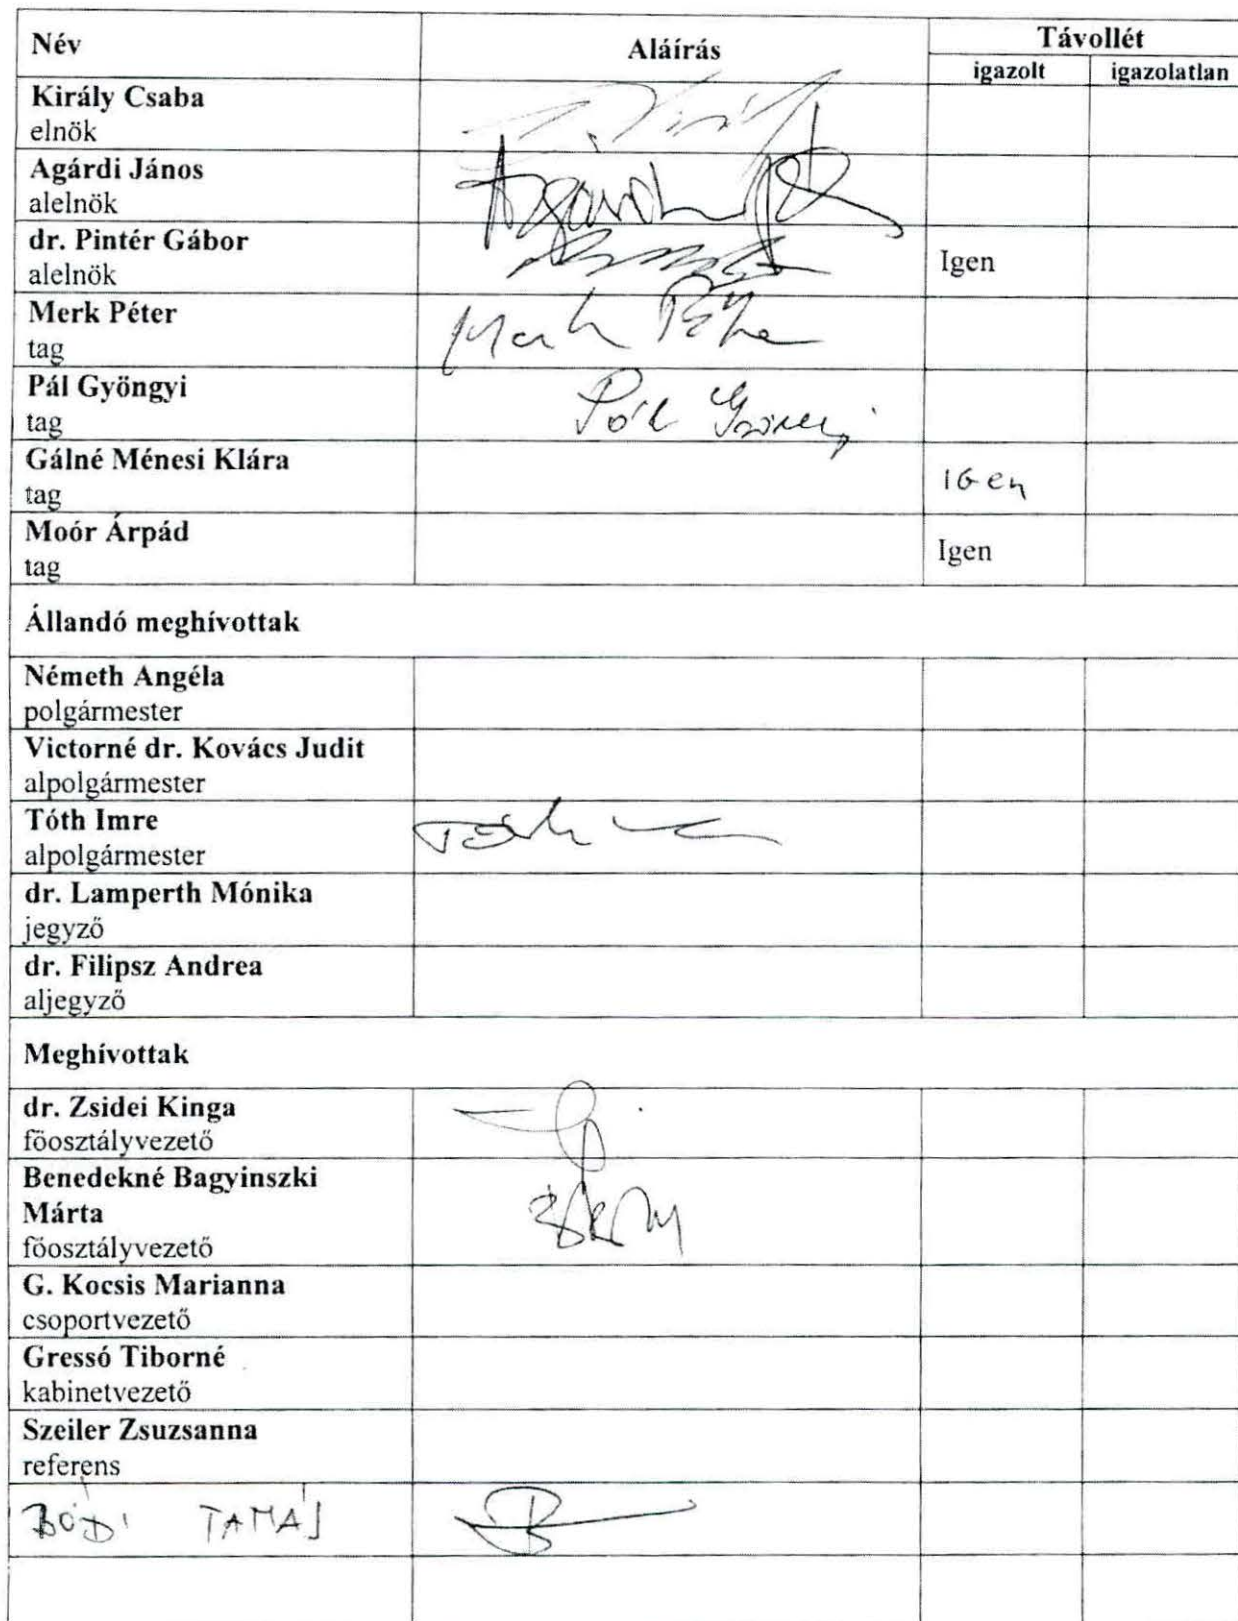 Név Aláírás Távollét
igazolt igazolatlan
Király Csaba
elnök
Agárdi János
alelnök
dr. Pintér Gábor
alelnök Igen
Merk Péter Merk Péter
tag
Pál Gyöngyi Pál Gyöngyi
tag
Gálné Ménesi Klára
tag IGen
Moór Árpád
tag Igen
Állandó meghívottak
Németh Angéla
polgármester
Victorné dr. Kovács Judit
alpolgármester
Tóth Imre Tóth
alpolgármester
dr. Lamperth Mónika
jegyző
dr. Filipsz Andrea
aljegyző
Meghívottak
dr. Zsidei Kinga
főosztályvezető
Benedekné Bagyinszki
Márta
főosztályvezető
G. Kocsis Marianna
csoportvezető
Gressó Tiborné
kabinetvezető
Szeiler Zsuzsanna
referens
BÓDI TAMÁS